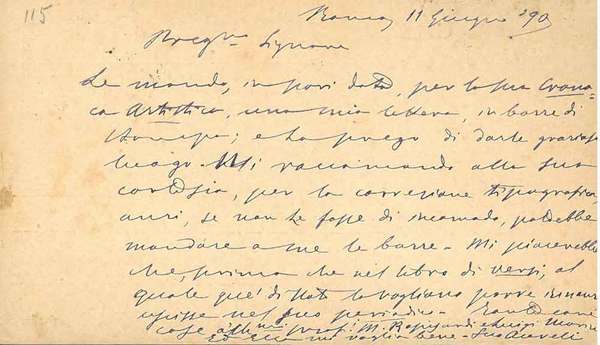 115
Roma, 11 Giugno '90
Preg.mo Signore
Le mando, in pari data, per la sua Crona-
ca Artistica, una mia lettera, in barre di
stampa; e La prego di darle grazioso
luogo. Mi raccomando alla sua
cortesia, per la correzione tipografica,
anzi, se non Le fosse di incomodo, potrebbe
mandare a me le barre. Mi piacerebbe
che, prima che nel libro di versi, al
quale
uscisse nel suo periodico. Tante care
cose prof. M. Rapisardi e Luigi
Ed Ella mi voglia bene. Suo